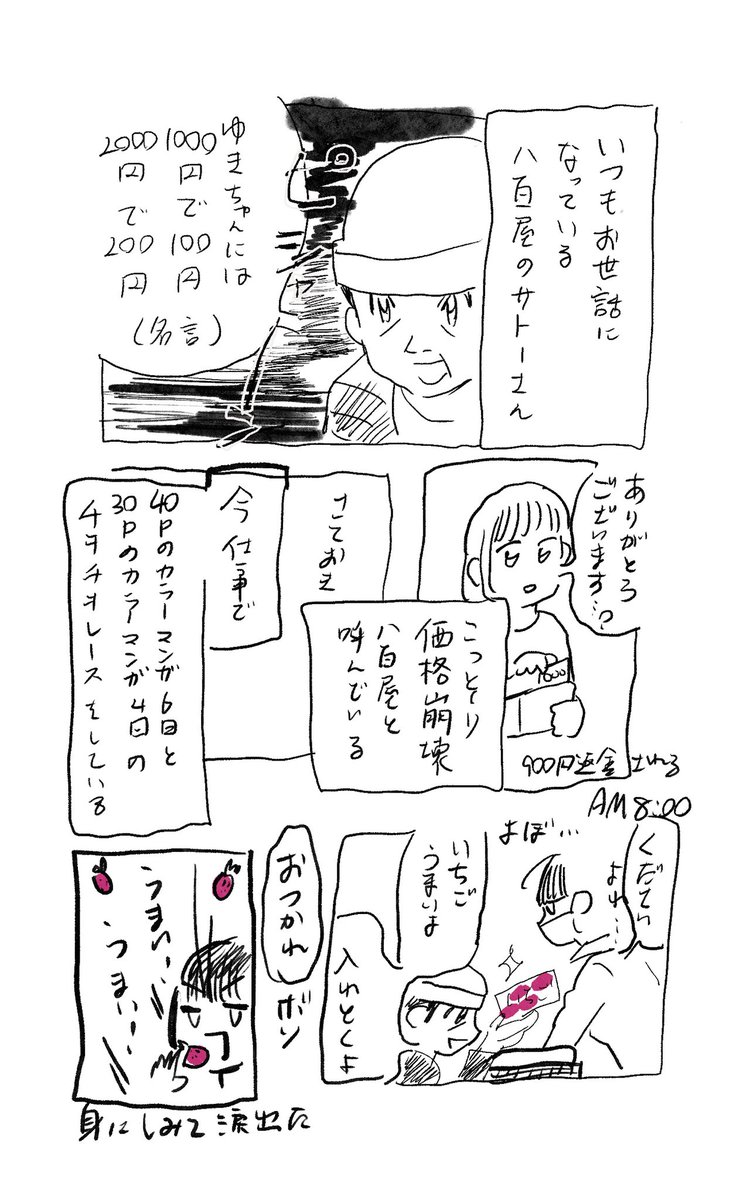 いつもお世話に
なっている
八百屋のサトーさん
ゆきちゃんには
1000円で100円
2000円で200円
(名言)
ありがとう
ございます…?
900円返金される
こっそり
価格崩壊
八百屋と
呼んでいる
さておき
今仕事で
40Pのカラーマンガ6日と
30Pのカラーマンガ4日の
チキチキレースをしている
AM8:00
よぼ…
くだてい
よれ…
いちご
うまいよ
入れとくよ
おつかれ
ボソ
うまい…
うまい…
身にしみて涙出た